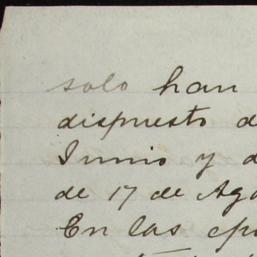 solo han
dispuesto d
Junio y d
de 17 de Ago
En las epo